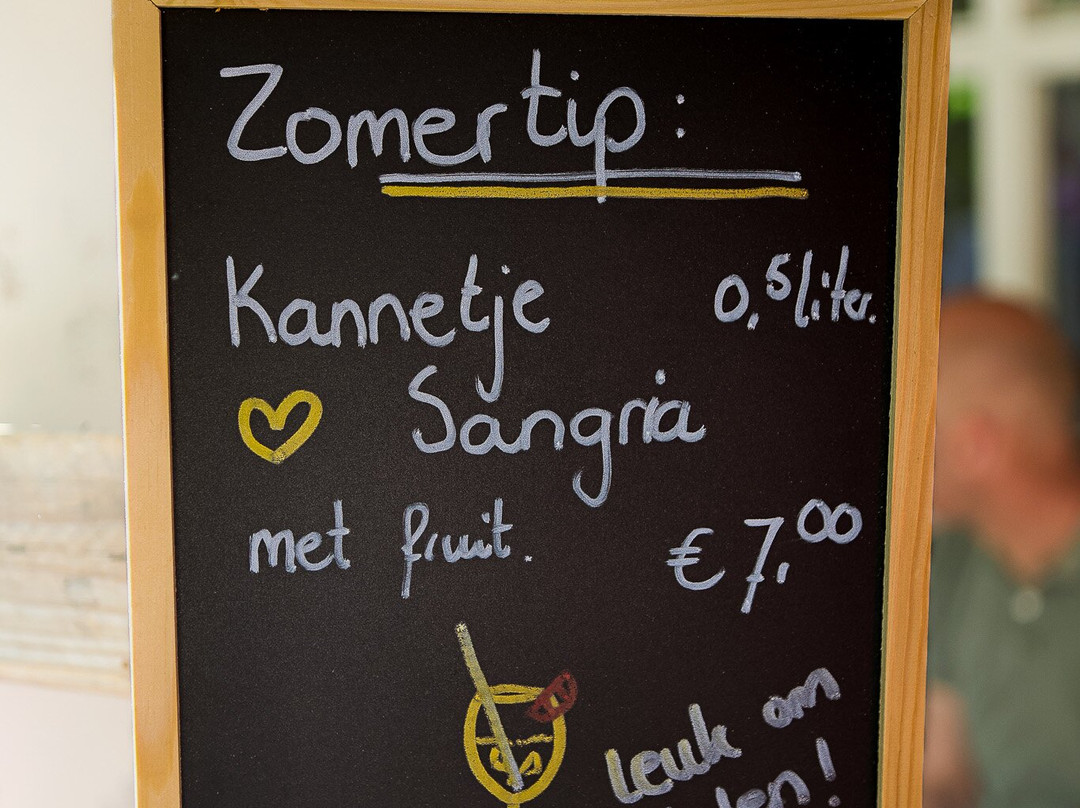 Zomertip:
Kannetje 0,5 liter.
Sangria
met fruit. €7,00
Leuk om